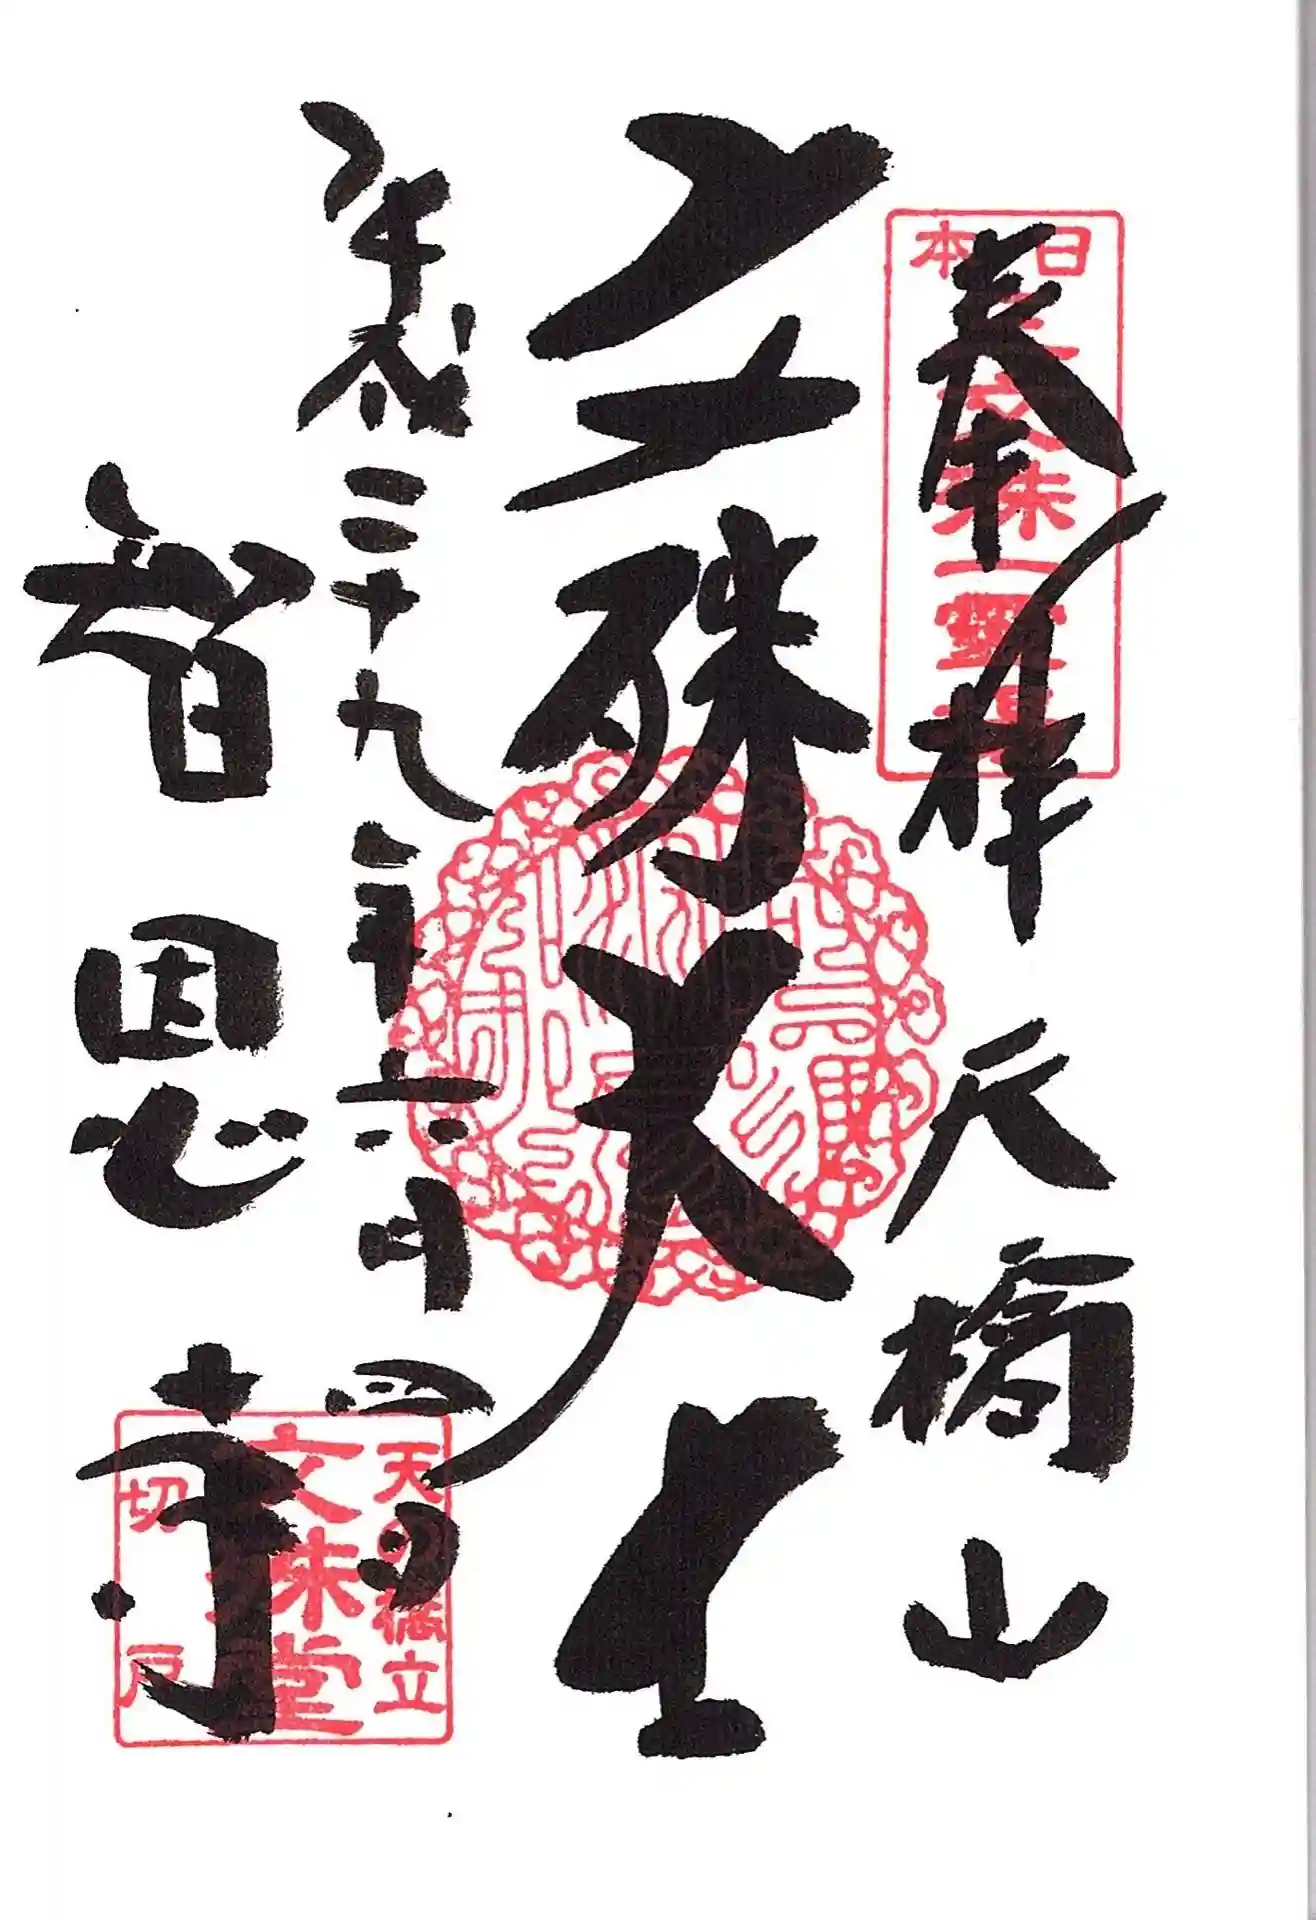 奉拝 天橋山
日本
三文殊一靈場
文殊大士
平成二十九年六月四日
智恩寺
天の橋立
文殊堂
切戸